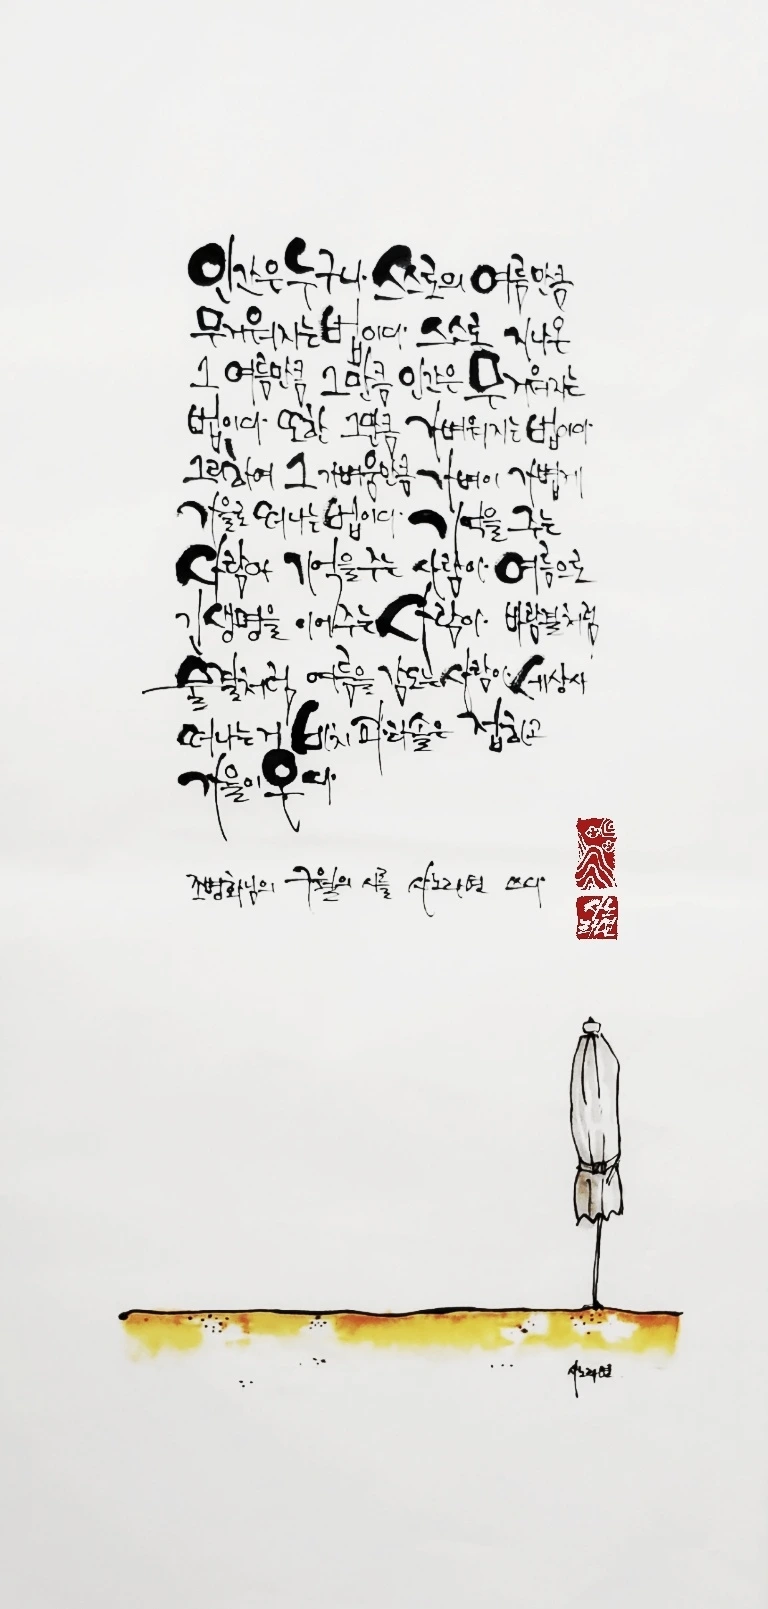 인간은 누구나 스스로의 여름만큼
무거워지는 법이다 스스로 지나온
그 여름만큼 그만큼 인간은 무거워지는
법이다 또한 그만큼 가벼워지는 법이다
그리하여 그 가벼움만큼 가벼이 가볍게
가을로 떠나는 법이다 기억을 주는
사람아 기억을 주는 사람아 여름으로
긴 생명을 이어주는 사람아 바람결처럼
물결처럼 여름을 감도는 사람아 세상사
떠나는 거 비치 파라솔은 접히고
가을이 온다
조병화님의 구월의 시를 사노라면 쓰다
사노
라면
사노라면